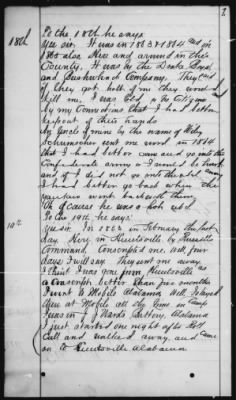 1
To the 18th he says
18th
Yes sir. It was in 1863 & 1864 and in
1865 also Here and around in the
County, It was by the Drake Boyd
and Company, They said
if they got hold of me they would
kill me, I was told by the Citizens
by my Connections that I had better
keep out of their hands
An Uncle of mine by the name of
Schrimscher sent me word in 1864
that I had better come and go into the
Confederate army or I would be hung
and if I did not go into the rebel army
I had better go back where the
yankees went back with them,
Of Course he was a rebel
To the 19th he says:
19th
Yes sir. In 1862 in February the last
day, Here, in Huntsville by
Command, Conscripted me, Well, four
days I will say. They sent me away
I think I was from Huntsville as
a Conscript better than five months
I went to Mobile Alabama, Well I stayed
there at Mobile all the time in camp
I was in J J Wards Battery, Alabama
I just started one night after Roll
Call and walked away, and came
on to Huntsville Alabama.